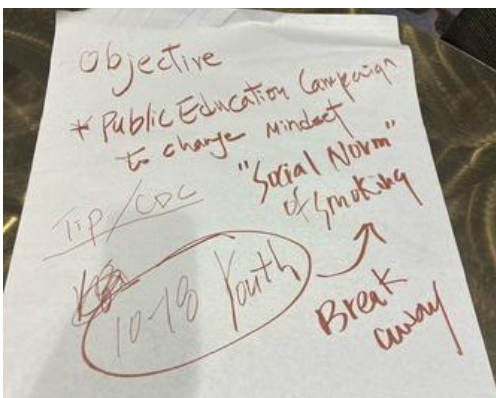 Objective
* Public Education Campaign
to change mindset
"Social Norm"
of smoking
Tip/CDC
10-18 Youth
Break
away